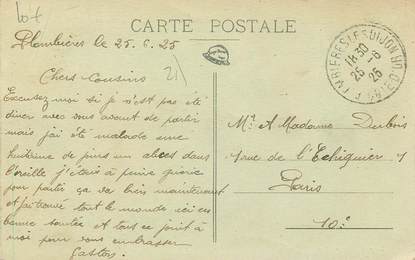 lot
CARTE POSTALE
Plombières le 25.6.25
21)
Chers Cousins
Excusez-moi si je n'est pas été
diner avec vous avant de partir
mais j'ai été malade une
huitaine de jours un abces dans
l'oreille j'étais à peine guerie
pour partir ça va bien maintenant
et j'ai trouvé tout le monde ici en
bonne santée et tous se joint à
moi pour vous embrasser
Gaston
PLOMBIERES-LES-DIJON
18 30
25-6
25
Mr et Madame Dubois
1 rue de l'Echiquier 1
Paris
10e